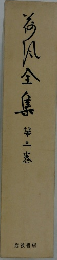 荷風全集
第二巻
岩波書店